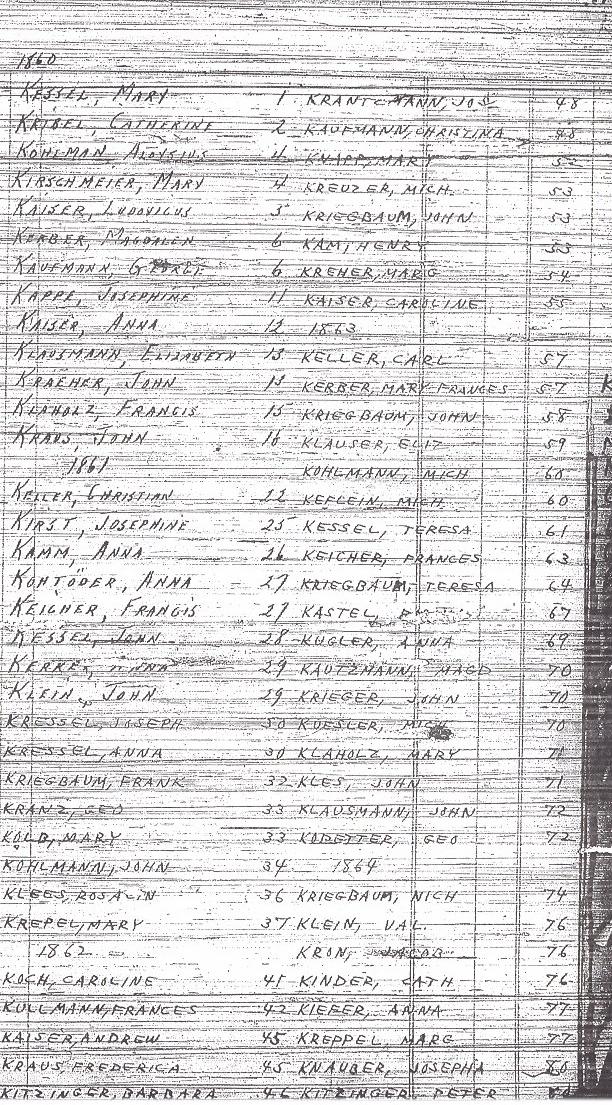 1860
KESSEL, MARY 1
KRIBEL, CATHERINE 2
KOHLMAN, ALOYSIUS 4
KIRSCHMEIER, MARY 4
KAISER, LUDOVICUS 5
KERBER, MAGDALEN 6
KAUFMANN, GEORGE 6
KAPPE, JOSEPHINE 11
KAISER, ANNA 12
KLAUSMANN, ELIZABETH 13
KRAEHER, JOHN 13
KLAHOLZ, FRANCIS 15
KRAUS, JOHN 16
1861
KELLER, CHRISTIAN 22
KIRST, JOSEPHINE 25
KAMM, ANNA 26
KOHTÖDER, ANNA 27
KEICHER, FRANCIS 27
KESSEL, JOHN 28
29
KLEIN, JOHN 29
KRESSEL, JOSEPH 30
KRESSEL, ANNA 30
KRIEGBAUM, FRANK 32
KRANZ, GEO 33
KOLB, MARY 33
KOHLMANN, JOHN 34
KLEES, ROSALIN 36
KREPEL, MARY 37
1862
KOCH, CAROLINE 41
KULLMANN, FRANCES 42
KAISER, ANDREW 45
KRAUS, FREDERICA 45
KITZINGER, BARBARA 46
KRANTCMANN, JOS 48
KAUFMANN, CHRISTINA 48
KNAPP, MARY
KREUZER, MICH. 53
KRIEGBAUM, JOHN 53
KAM, HENRY 53
KREHER, MARG 54
KAISER, CAROLINE 55
1863
KELLER, CARL 57
KERBER, MARY FRANCES 57
KRIEGBAUM, JOHN 58
KLAUSER, ELIZ 59
KOHLMANN, MICH 60
KEFLEIN, MICH 60
KESSEL, TERESA 61
KEICHER, FRANCES 63
KRIEGBAUM, TERESA 64
KASTEL, 67
KUGLER, ANNA 69
KAUTZMANN, MAGD 70
KRIEGER, JOHN 70
KOESLER, MICH 70
KLAHOLZ, MARY 71
KLES, JOHN 71
KLAUSMANN, JOHN 72
KODETTER, GEO 72
1864
KRIEGBAUM, NICH 74
KLEIN, VAL. 76
KRON, JACOB 76
KINDER, CATH 76
KIEFER, ANNA 77
KREPPEL, MARG 77
KNAUBER, JOSEPHA 80
KITZINGER, PETER